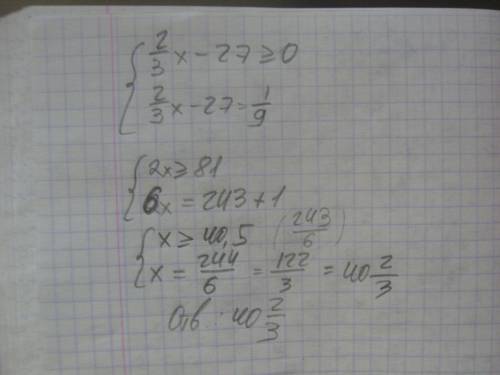 { 2/3 x - 27 ≥ 0
{ 2/3 x - 27 = 1/9
{ 2x ≥ 81
{ 6x = 243 + 1
{ x ≥ 40,5 (243/6)
{ x = 244/6 = 122/3 = 40 2/3
Отв: 40 2/3